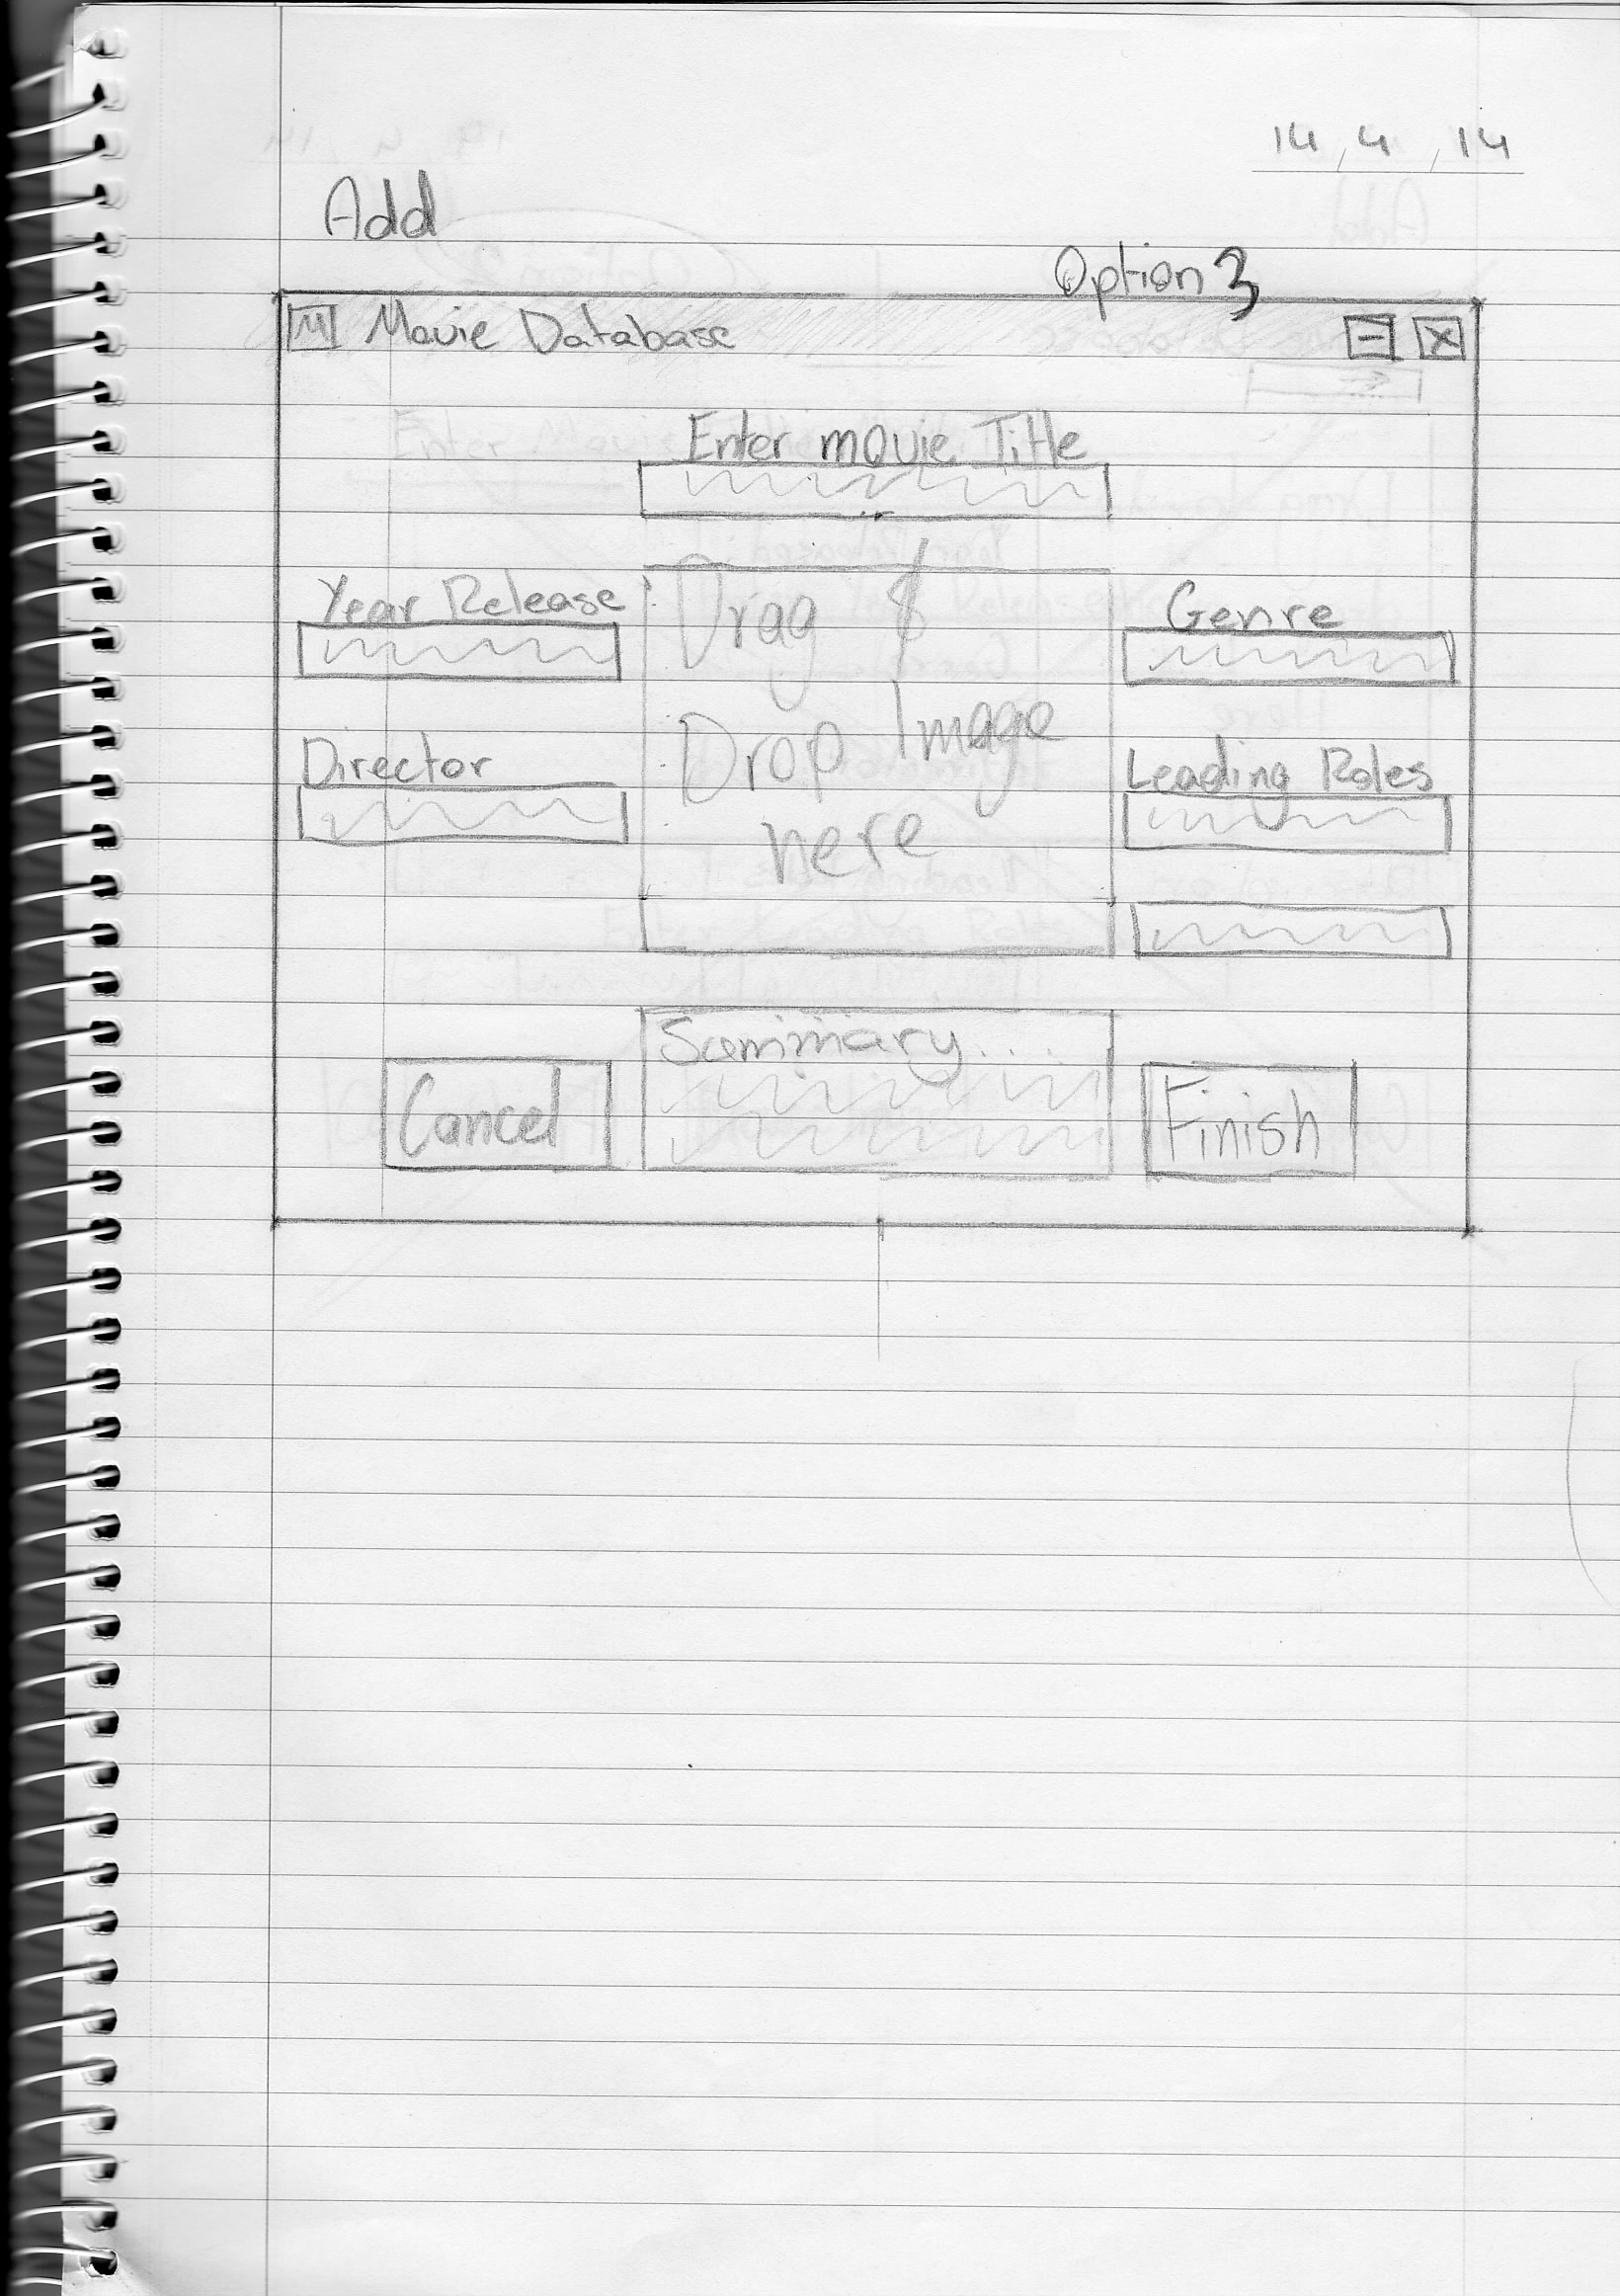 14, 4, 14
Add
Option 3
M Movie Database
Enter movie Title
Year Release
Drag &
Genre
Drop Image
Director
Leading Roles
here
Summary....
Cancel
Finish